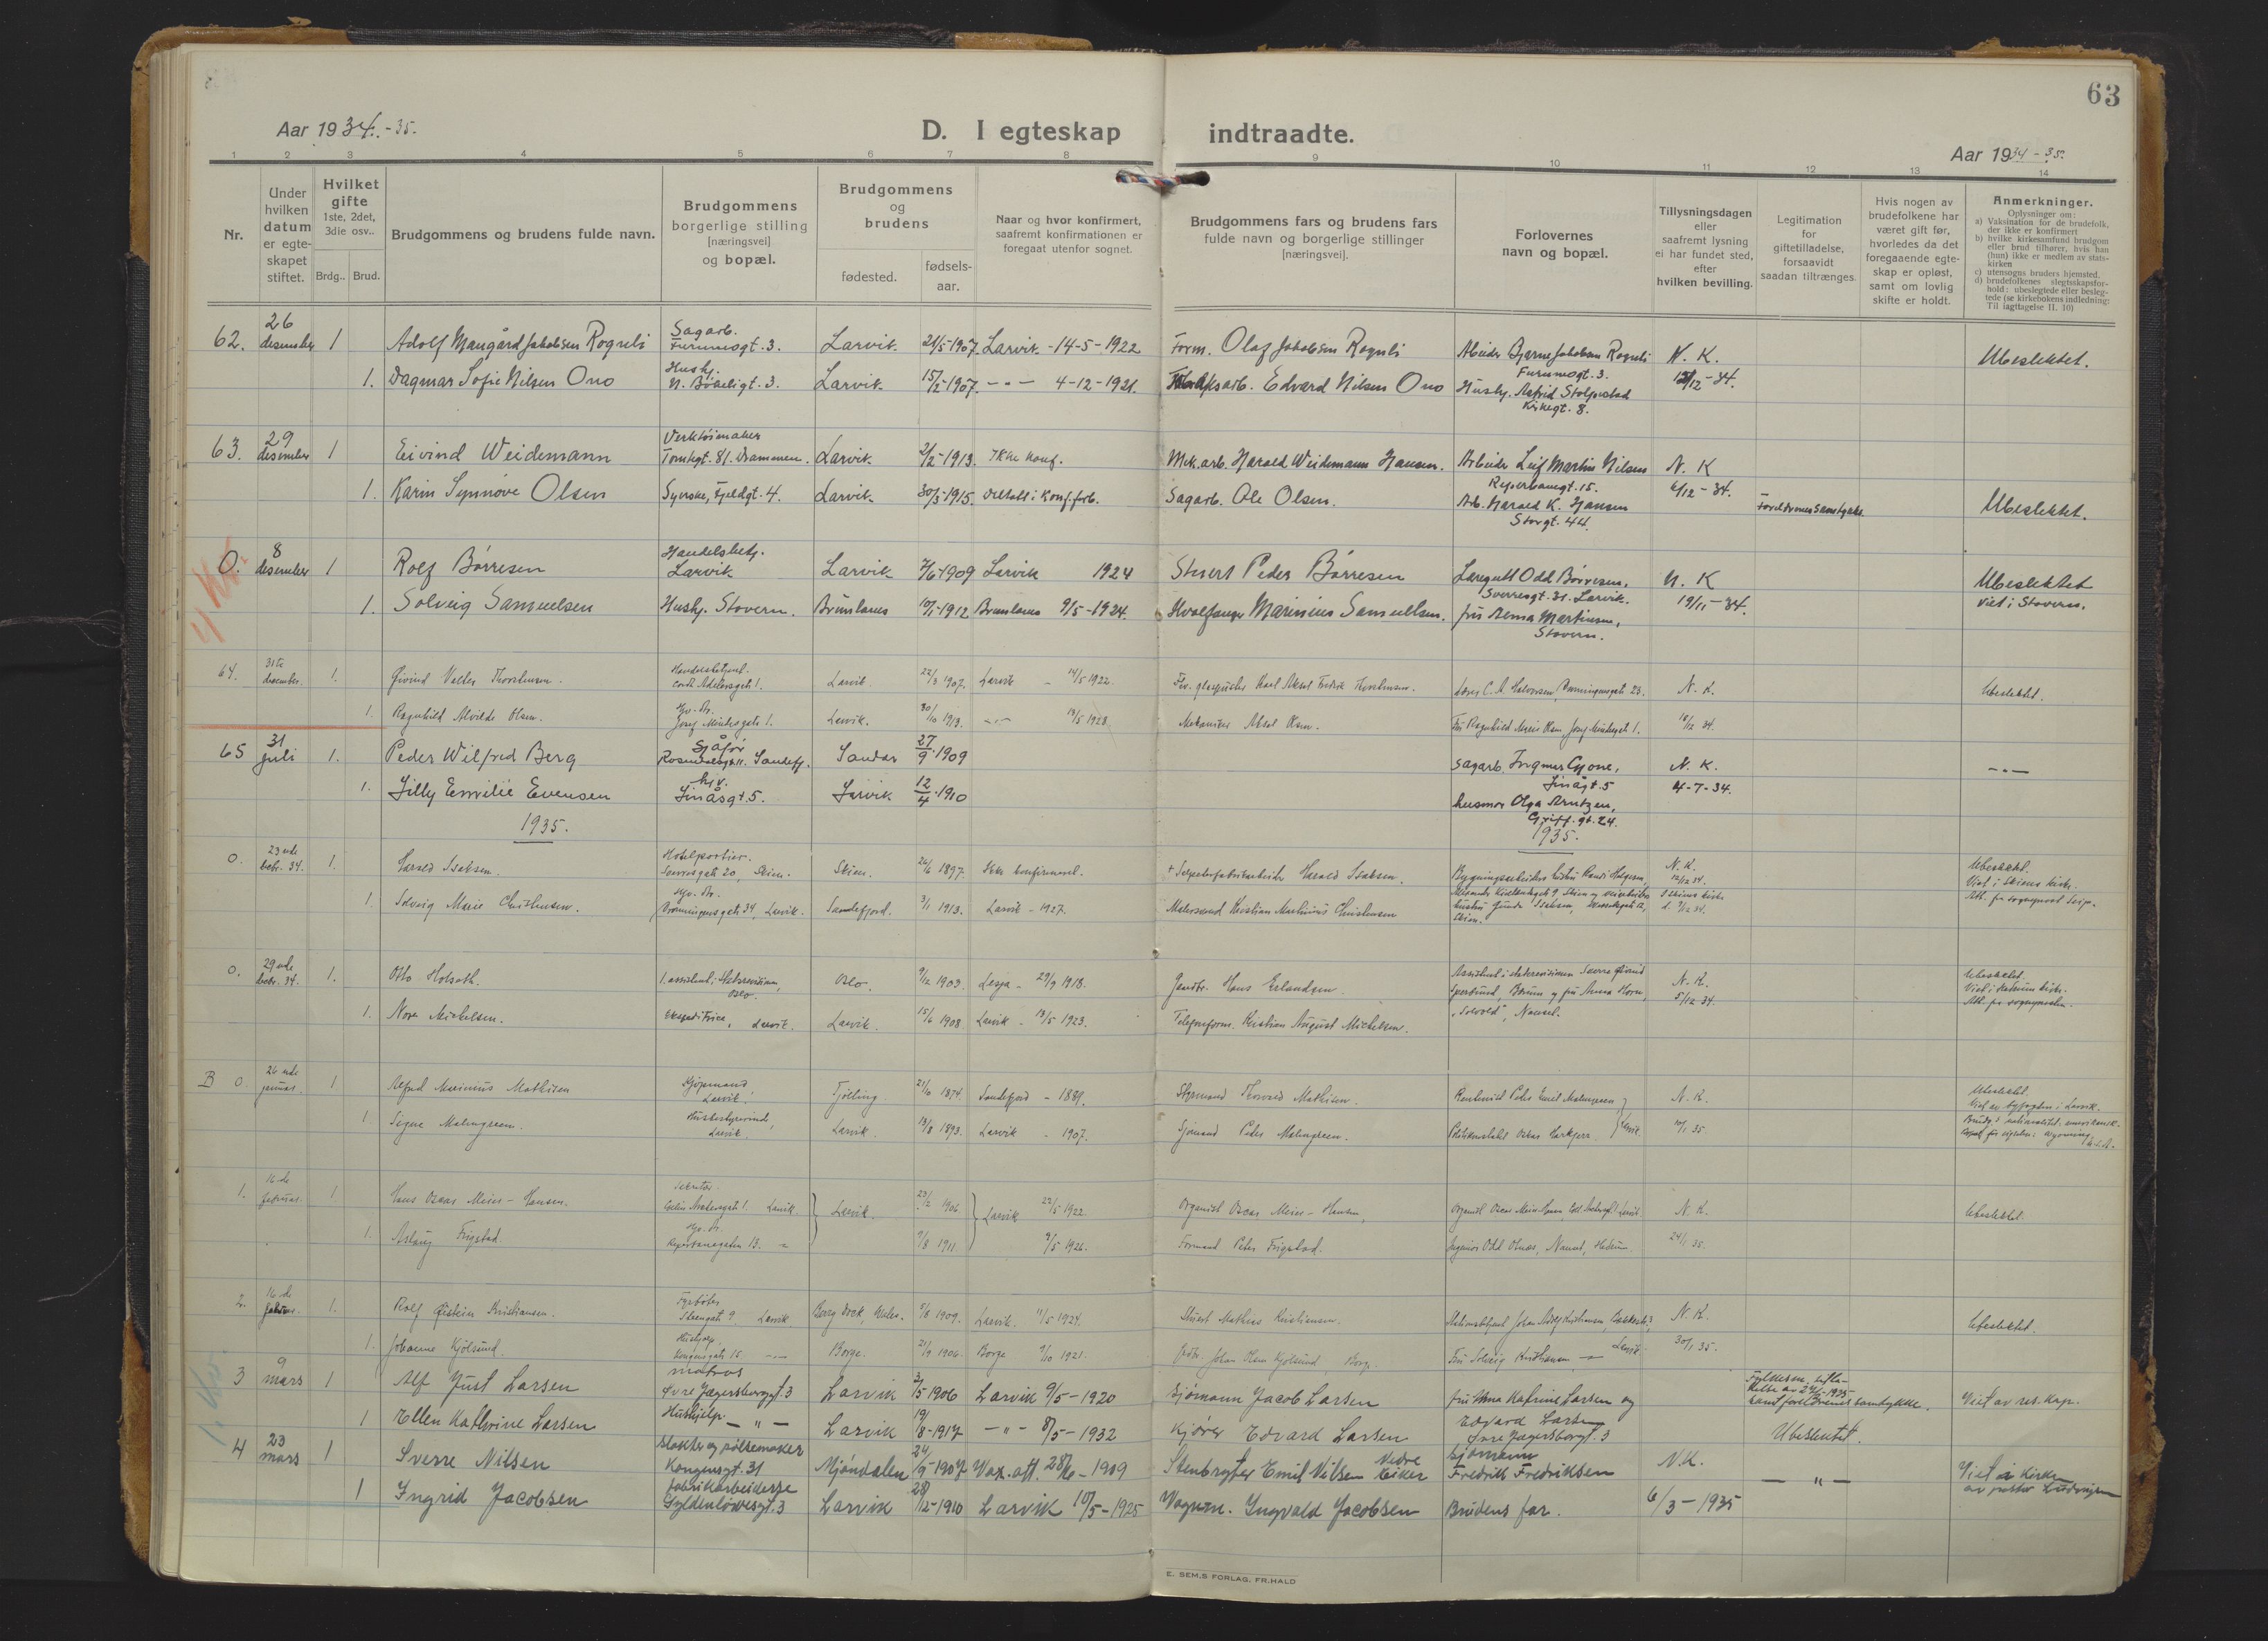 63
Aar 1934.-35.
D. I egteskap indtraadte.
Aar 1934-35.
1 2 3 4 5 6 7 8 9 10 11 12 13 14
Nr.
Under hvilken datum er egteskapet stiftet.
Hvilket gifte 1ste, 2det, 3die osv..
Brdg.. Brud.
Brudgommens og brudens fulde navn.
Brudgommens borgerlige stilling [næringsvei] og bopæl.
Brudgommens og brudens
fødested.
fødsels-aar.
Naar og hvor konfirmert, saafremt konfirmationen er foregaat utenfor sognet.
Brudgommens fars og brudens fars fulde navn og borgerlige stillinger [næringsvei].
Forlovernes navn og bopæl.
Tillysningsdagen eller saafremt lysning ei har fundet sted, efter hvilken bevilling.
Legitimation for giftetilladelse, forsaavidt saadan tiltrænges.
Hvis nogen av brudefolkene har været gift før, hvorledes da det foregaaende egteskap er opløst, samt om lovlig skifte er holdt.
Anmerkninger.
Oplysninger om:
a) Vaksination for de brudefolk, der ikke er konfirmert
b) hvilke kirkesamfund brudgom eller brud tilhører, hvis han (hun) ikke er medlem av statskirken
c) utensogns bruders hjemsted.
d) brudefolkenes slegtsskapsforhold: ubeslegtede eller beslegtede (se kirkebokens indledning: Til iagttagelse II. 10)
62. 26 desember 1 Adolf Maugård Jakobsen Rognli Sagarb. Furumogt. 3. Larvik 21/5-1907. Larvik -14-5-1922 Form. Olaf Jakobsen Rognli Arbeider Bjarne Jakobsen Rognli Furumogt. 3. N. K. Ubeslektet.
1. Dagmar Sofie Nilsen Ono Hushj. N. Bøkeligt. 3. Larvik 15/2-1907. -"- 4-12-1921. Edvard Nilsen Ono Hushj. Astrid Stolpestad Kirkegt. 8. /12-34.
63. 29 desember 1 Eivind Weidemann Verktøimaker Tomtegt. 81. Drammen. Larvik 2/2-1913. Ikke konf. Mek.arb. Harald Weidemann Hansen. Arbeider Leif Martin Nilsen Reperbanegt. 15. N. K
1. Karin Synnøve Olsen Syerske, Fjeldgt. 4. Larvik 30/3-1915. deltatt i konf.forb. Sagarb. Ole Olsen. Arb. Harald K. Hansen Storgt. 44. 6/12-34. Foreldrenes samtykke. Ubeslektet.
4 Kr.
0. 8 desember 1 Rolf Børresen Handelsbetj. Larvik Larvik 7/6-1909 Larvik 1924 Stuert Peder Børresen Læregutt Odd Børresen, Sverresgt. 31. Larvik. N. K Ubeslektet
1. Solveig Samuelsen Hushj. Stavern. Brunlanes 10/1-1912 Brunlanes 9/5-1924. Hvalfanger Marinius Samuelsen. fru Asma Martinsen, Stavern. 19/11-34. viet i Stavern.
64. 31te desember. 1. Øivind Valter Thorstensen. Handelsbetjent. Cort Adelersgate 1. Larvik. 22/3 1907. Larvik - 14/5 1922. N. K. Ubeslektet.
1. Ragnhild Alvilde Olsen. Hv. dr. Josef Mindesgate 1. Larvik. 30/10 1913. -"- 13/5 1928. Mekaniker Aksel Olsen. Fru Ragnhild Marie Olsen, Josef Mindesgate 1. 18/12 34.
65 31 juli 1. Peder Wilfred Berg Sjåfør Rosenvoldsgt. 11. Sandefj. Sandar 27/9-1909 Sagarb. Ingmar Gjone, Linågt. 5 N. K. -"-
1. Lilly Emilie Evensen hjv. Linåsgt. 5. Larvik 12/4-1910 husmor Olga Arntzen, Griff. gt. 24. 4-7-34.
1935. 1935.
0. 23nde decbr. 34. 1. Harald Isaksen. Hotelportier. Sverresgate 20, Skien. Skien. 26/6 1897. Ikke konfirmert. Harald Isaksen. N. K. 12/12 34. Ubeslektet. Viet i Skiens kirke.
1. Solveig Marie Christensen. Hv. dr. Dronningensgate 34, Larvik. Sandefjord. 3/1 1913. Larvik - 1927. Kristian Mathinius Christensen
0. 29nde decbr. 34. 1. Otto Holseth. 1. assistent i Statsrevisionen, Oslo. Oslo. 9/12 1903. Lesja - 29/9 1918. Gaardbr. Hans Erlandsen. N. K. Ubeslektet.
1. Nora Michelsen. Ekspeditrice, Larvik. Larvik. 15/6 1908. Larvik - 13/5 1923. Telefonform. Kristian August Michelsen. 5/12 34.
B 0. 26nde januar. 1 Alfred Marinius Mathisen Kjøpmand, Larvik. Tjølling. 21/10 1874. Sandefjord - 1889. Styrmand Thorvald Mathisen. Rentenist Peter Emil Malmgreen N. K. Ubeslektet. Viet av byfogden i Larvik.
1. Signe Malmgreen. Husbestyrerinde, Larvik. Larvik. 13/8 1893. Larvik - 1907. Sjømand Peder Malmgreen. Larvik. 10/1 35
1. 16de februar. 1 Hans Oscar Meier-Hansen. Sekretær. Larvik. Larvik. 23/12 1906 Larvik 22/5 1922. Organist Oscar Meier-Hansen, N. K. Ubeslektet.
1. Aslaug Frigstad. Hv. dr. Reperbanegaten 13. 9/8 1911. 9/5 1926. Formand Peter Frigstad. Ingeniør Odd Olsen, 24/1 35.
2. 16de februar. 1. Rolf Øistein Kristiansen. Fyrbøter. Steengate 9, Larvik Barry Dock, Wales. 5/8 1909. Larvik. 11/5 1924. Stuert Mathias Kristiansen. N. K. Ubeslektet.
1. Johanne Kjølsund. Hushjelp. Kongensgate 15. -"- Borge. 21/9 1906. Borge 9/10 1921. Johan Olsen Kjølsund, Borge. Fru Solveig Kristiansen -"- 30/1 35.
1. Kr.
3 9 mars 1 Alf Just Larsen matros Øvre Jægersborggt. 3 Larvik 2/5 1906 Larvik 9/5-1920 Sjømann Jacob Larsen fru Anna Kathrine Larsen og samt foreldrenes samtykke. Viet av res. kap.
1 Ellen Kathrine Larsen Hushjelp. -"- Larvik 19/8-1917 -"- 8/5-1932 Kjører Edvard Larsen Edvard Larsen Øvre Jægersborgt. 3 Ubeslektet.
4 23 mars 1 Sverre Nilsen Slakter og pølsemaker Kongensgt. 31 Mjøndalen 24/9-1907 Vax. att. 28/6-1909 Stenbryter Emil Nilsen Nedre Eiker Sjømann Fredrik Fredriksen N.K. -"- Viet i kirken
1 Ingrid Jacobsen fabrikarbeiderske Gyldenløvesgt. 3 Larvik 28/12-1910 Larvik 10/5-1925 Vognm. Ingvald Jacobsen Brudens far. 6/3-1935
E. SEM.S FORLAG, FR.HALD